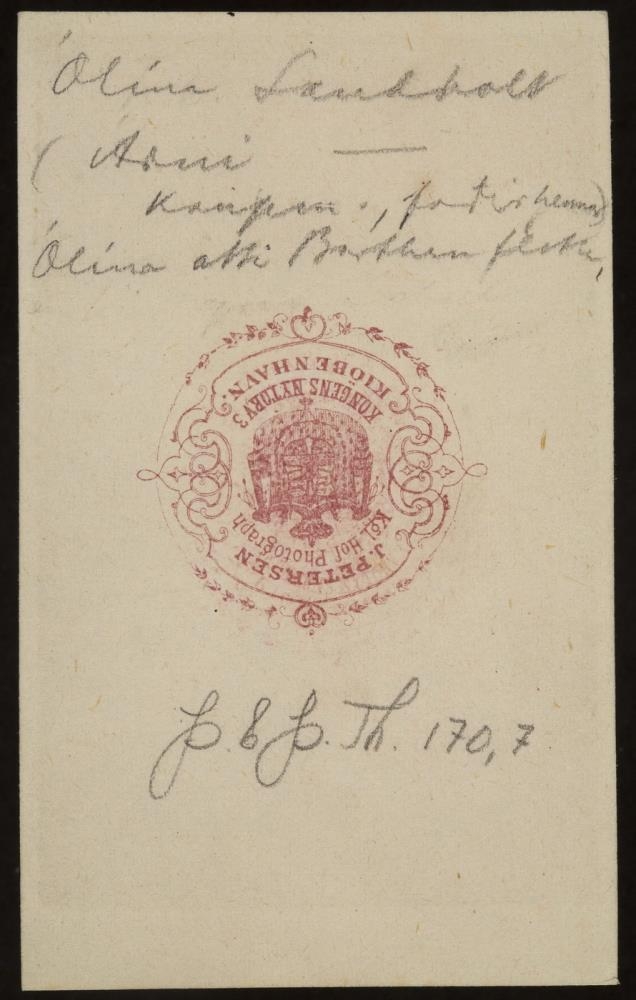 Ólína Sandholt
( Árni —
kaupm., faðir hennar)
Ólína átti Barthen
KONGENS NYTORV 3
KIÖBENHAVN.
J. PETERSEN
Kgl. Hof Photograph
Þ. & Þ. Th. 170,7